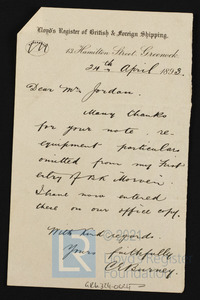 Lloyd's Register of British & Foreign Shipping.
13 Hamilton Street, Greenock
24th April 1893.
Dear Mr Jordan.
Many thanks
for your note re-
equipment particulars
omitted from my first
entry of BK Morven
I have now entered
these on our office copy.
With kind regards.
Yours faithfully
C Burney
LR
© 2021
Lloyd's Register
Foundation